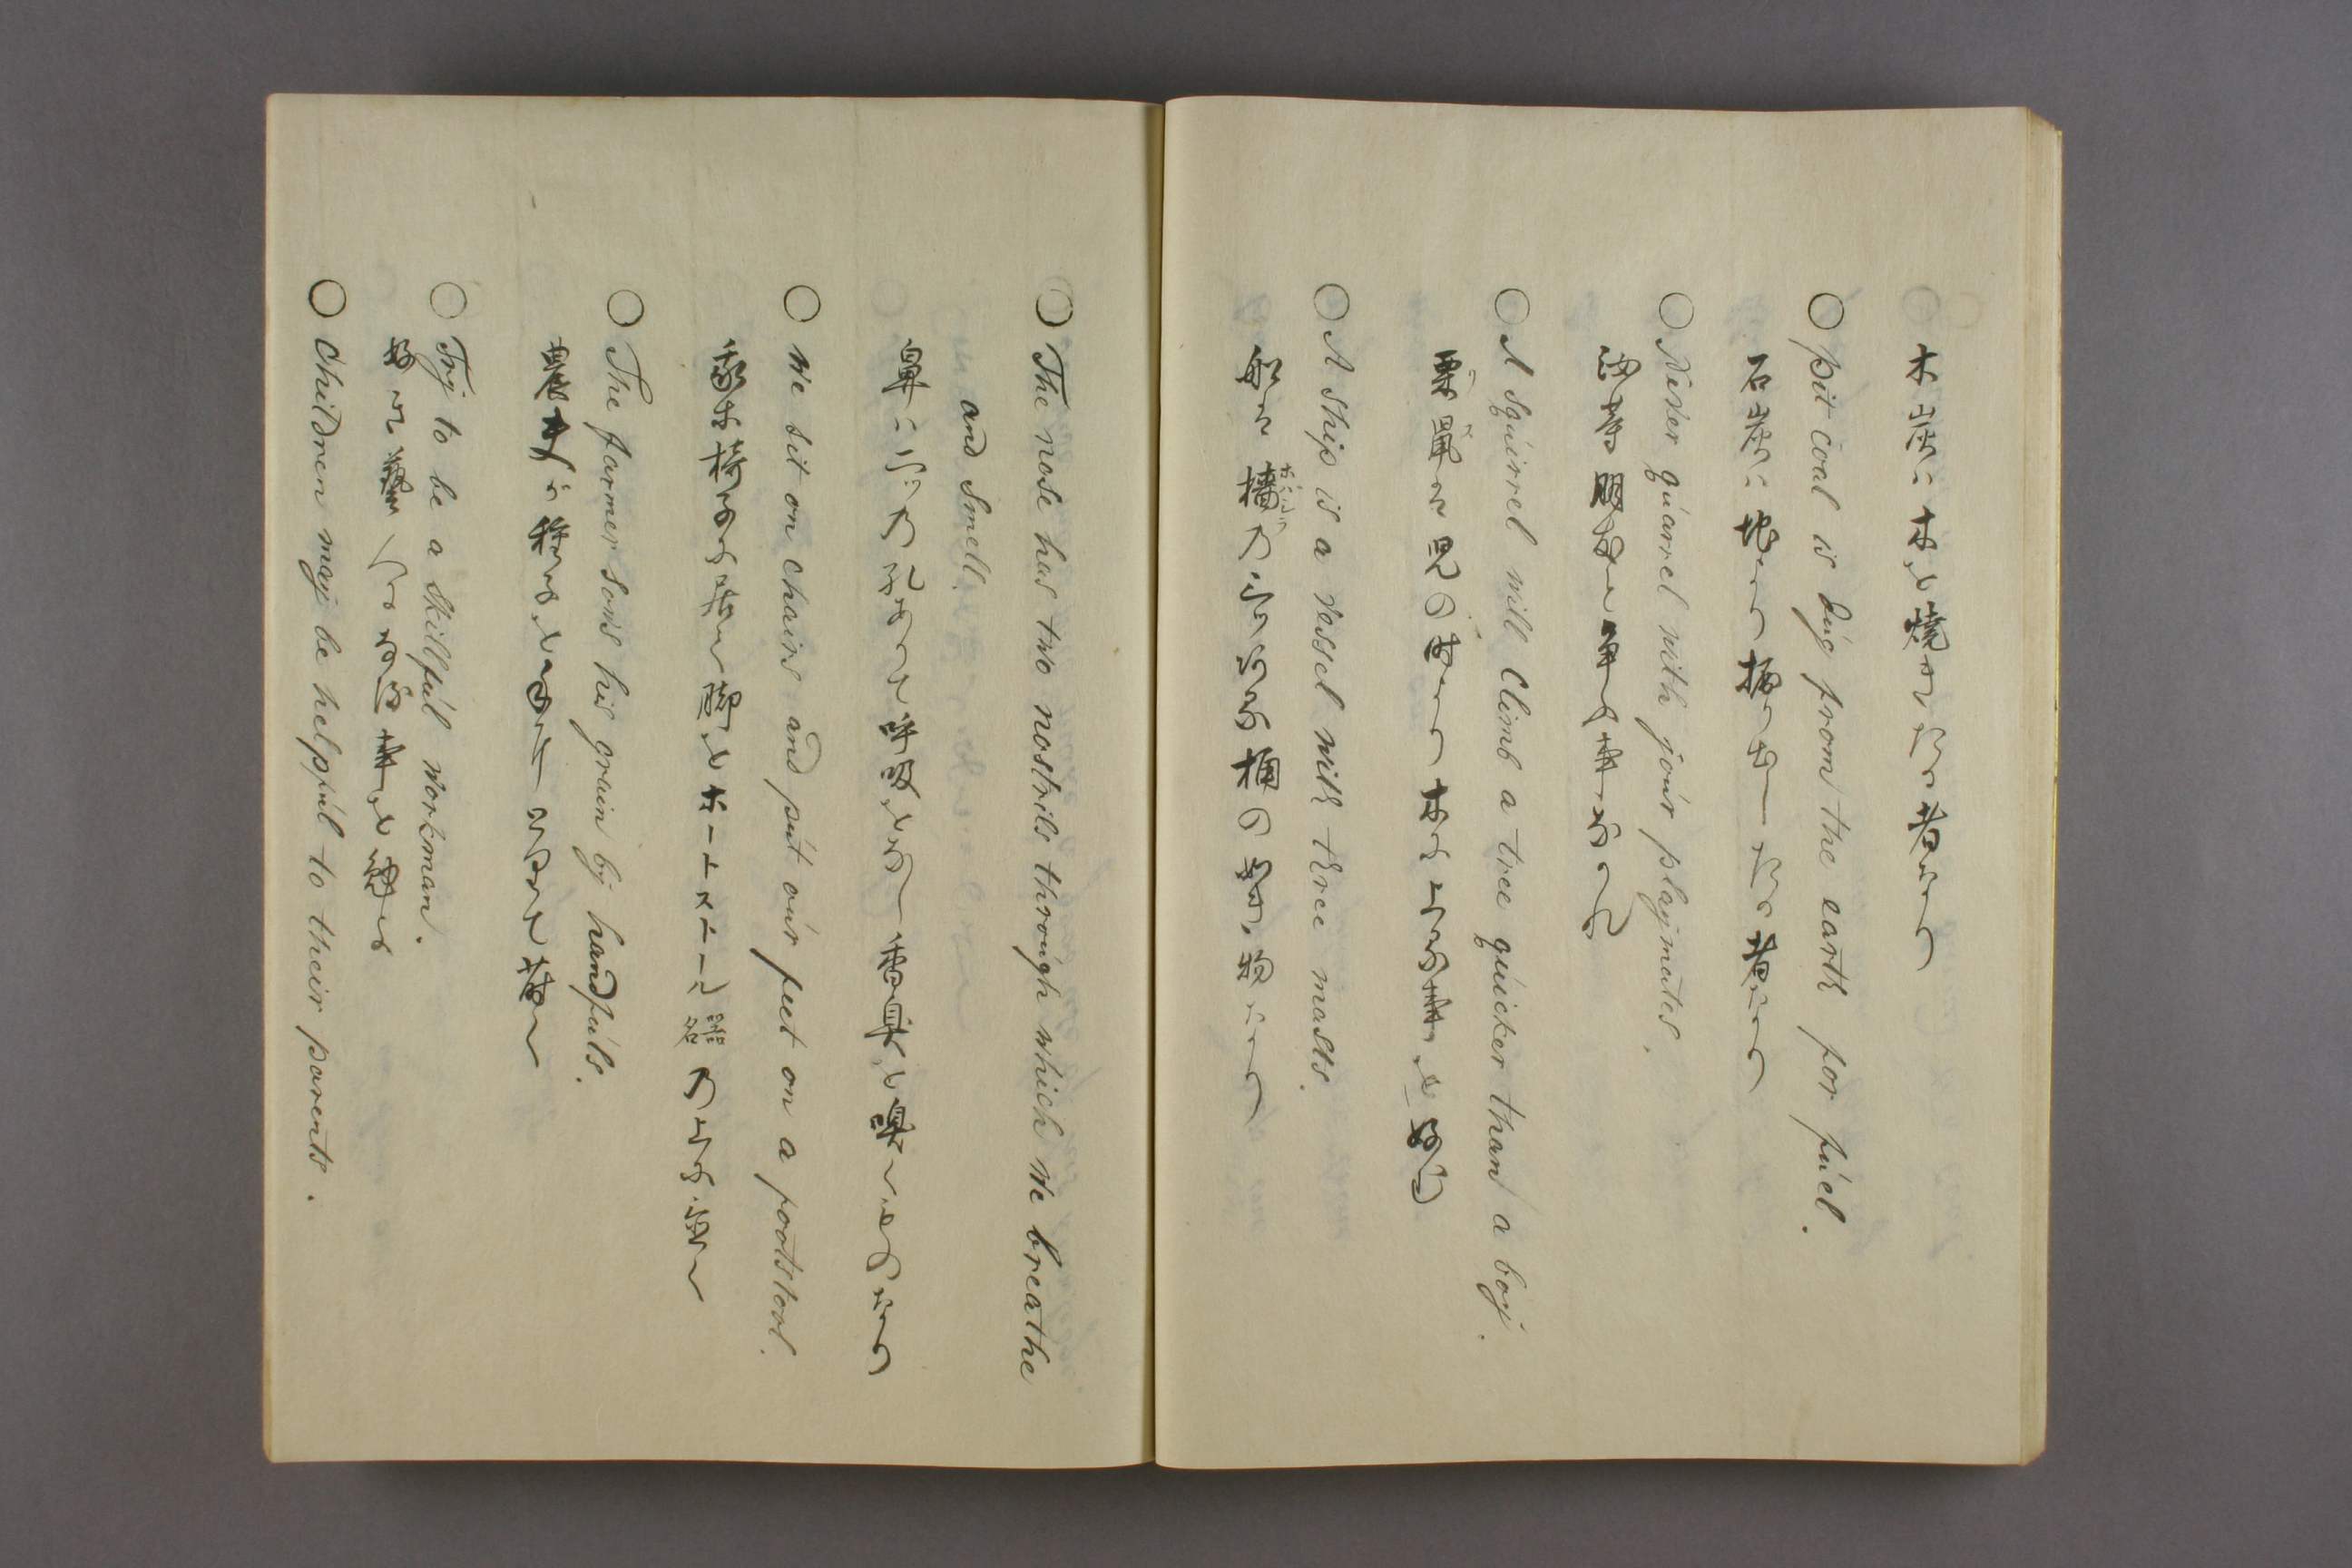 木炭ハ木を焼たる者なり
○ pit coal is dug from the earth for fuel.
石炭ハ地より掘り出したる者なり
○ Never quarrel with your playmates.
汝等朋友と争ふ事なかれ
○ A squirrel will climb a tree quicker than a boy.
栗鼠は児のより木に上る事を好
○ A ship is a vessel with three masts.
船は檣乃ある桶の物なり
○ The nose has two nostrils through which we breathe
and smell.
鼻ハ二ツ乃孔ありて呼吸をなし香臭を嗅くものなり
○ We sit on chairs and put our feet on a footstool.
我等椅子に居し脚をホートストール器名乃上に置く
○ The farmer sows his grain by handfuls.
農夫ハ種を手にて蒔く
○ Try to be a skillful workman.
好て藝人なる事を
○ Children may be helpful to their parents.